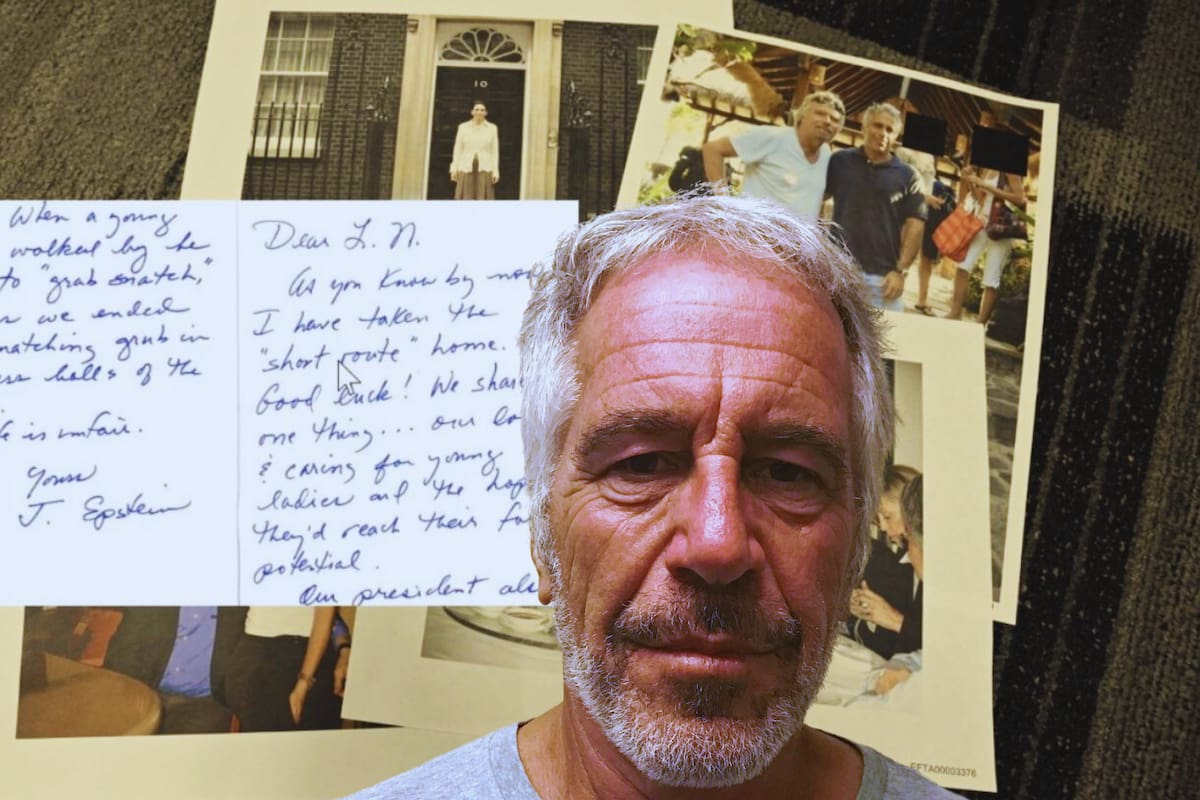 10
When a young
walked by he
to "grab snatch,"
we ended
natching grub in
ess halls of the
fe is unfair.
Yours
J. Epstein
Dear L. N.
As you know by now
I have taken the
"short route" home.
Good luck! We share
one thing... our lo
& caring for young
ladies and the hop
they'd reach their fu
potential.
Our president als
EFTA00003376